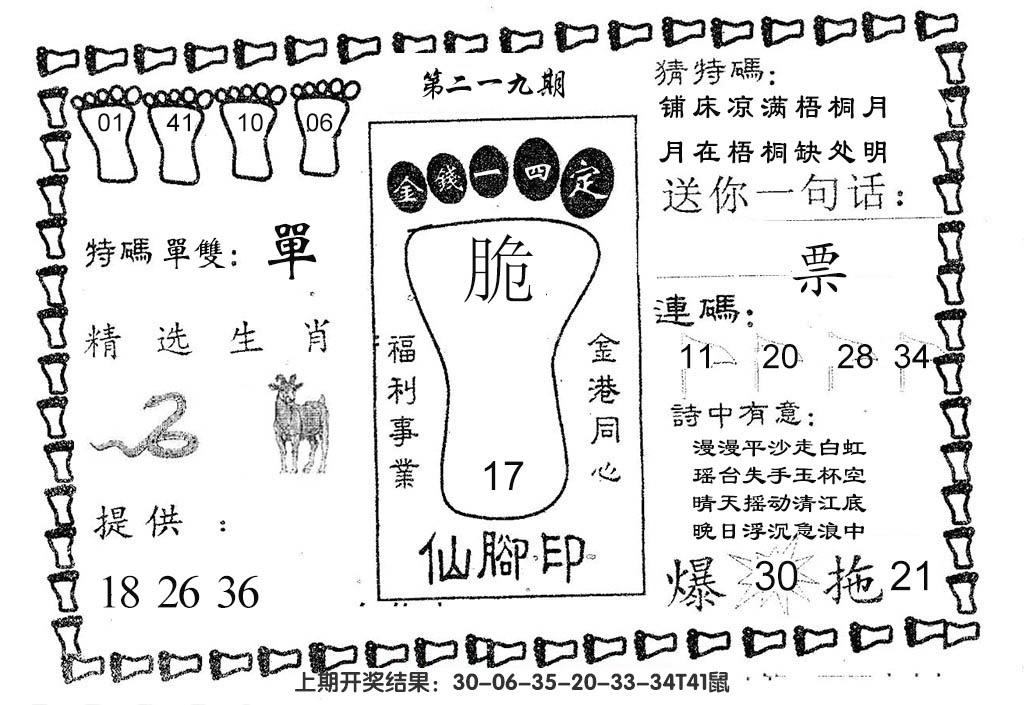 第二一九期
01 41 10 06
特碼單雙：單
精选生肖
提供：
18 26 36
金錢一四定
脆
福利事業
金港同心
17
仙腳印
猜特碼：
铺床凉满梧桐月
月在梧桐缺处明
送你一句话：
票
連碼：
11 20 28 34
詩中有意：
漫漫平沙走白虹
瑶台失手玉杯空
晴天摇动清江底
晚日浮沉急浪中
爆 30 拖 21
上期开奖结果：30-06-35-20-33-34T41鼠